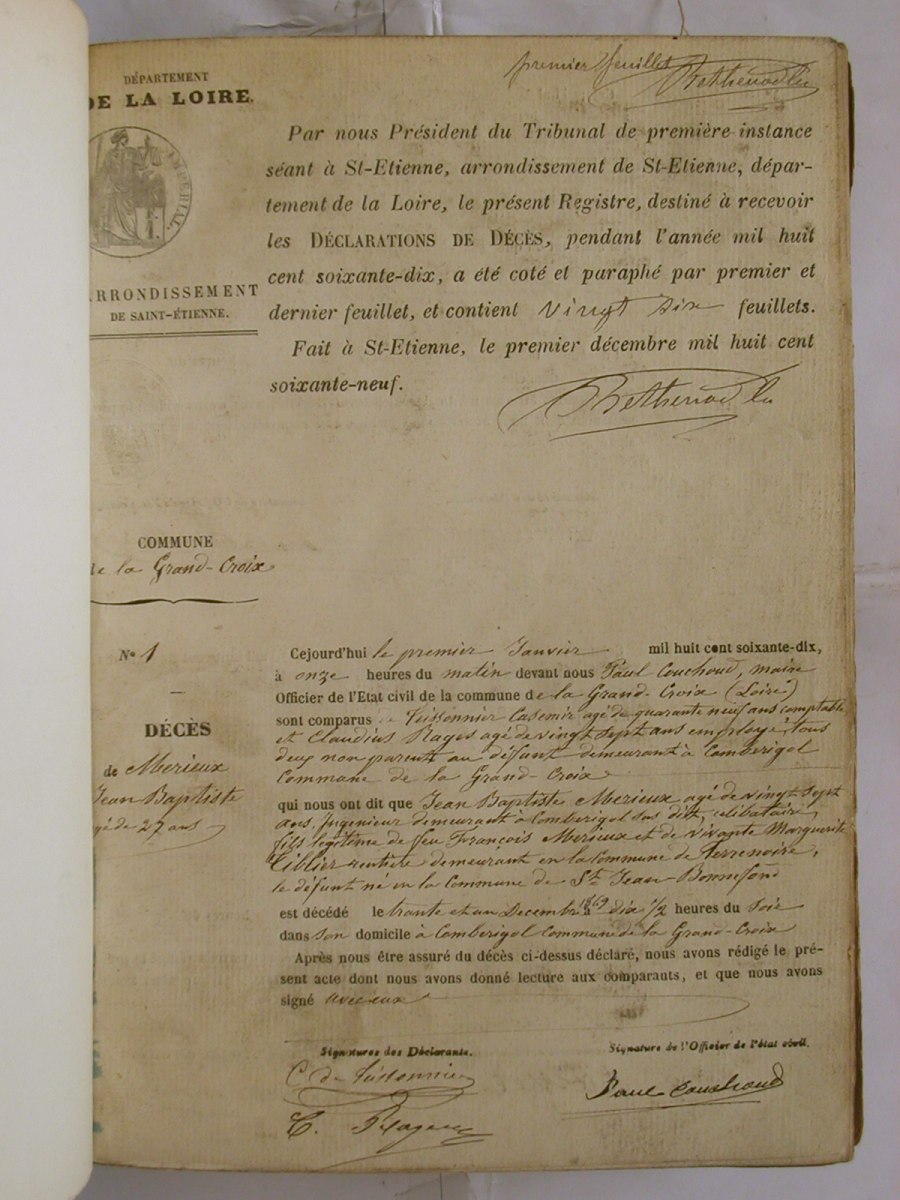 premier feuillet
DÉPARTEMENT
DE LA LOIRE.
IMPÉRIAL.
ARRONDISSEMENT
DE SAINT-ÉTIENNE.
Par nous Président du Tribunal de première instance
séant à St-Etienne, arrondissement de St-Etienne, dépar-
tement de la Loire, le présent Registre, destiné à recevoir
les DÉCLARATIONS DE DÉCÈS, pendant l'année mil huit
cent soixante-dix, a été coté et paraphé par premier et
dernier feuillet, et contient vingt six feuillets.
Fait à St-Etienne, le premier décembre mil huit cent
soixante-neuf.
COMMUNE
de la Grand-Croix
No 1
DÉCÈS
de Merieux
Jean Baptiste
gé de 27 ans
Cejourd'hui le premier Janvier mil huit cent soixante-dix,
à onze heures du matin devant nous Paul Couchoud, maire
Officier de l'Etat civil de la commune de la Grand-Croix (Loire)
sont comparus de Tissonnier Casemir agé de quarante neuf ans comptable
et Claudius Rages agé de vingt sept ans employé, tous
deux non parents au défunt demeurant à Comberigol
Commune de la Grand-Croix
qui nous ont dit que Jean Baptiste Merieux agé de vingt sept
ans, Ingenieur demeurant à Comberigol sus dit, celibataire,
fils légitime de feu François Merieux et de vivante Marguerite
Ciblier rentière demeurant en la Commune de Terrenoire,
le défunt né en la Commune de St Jean-Bonnefond
est décédé le trante et un Decembre 1869 à dix 1/2 heures du Soir
dans son domicile à Comberigol Commune de la Grand-Croix
Après nous être assuré du décès ci-dessus déclaré, nous avons rédigé le pré-
sent acte dont nous avons donné lecture aux comparants, et que nous avons
signé avec eux
Signatures des Déclarants.
Signature de l'Officier de l'état civil.
C de Tissonnier
Paul Couchoud
C. Rages